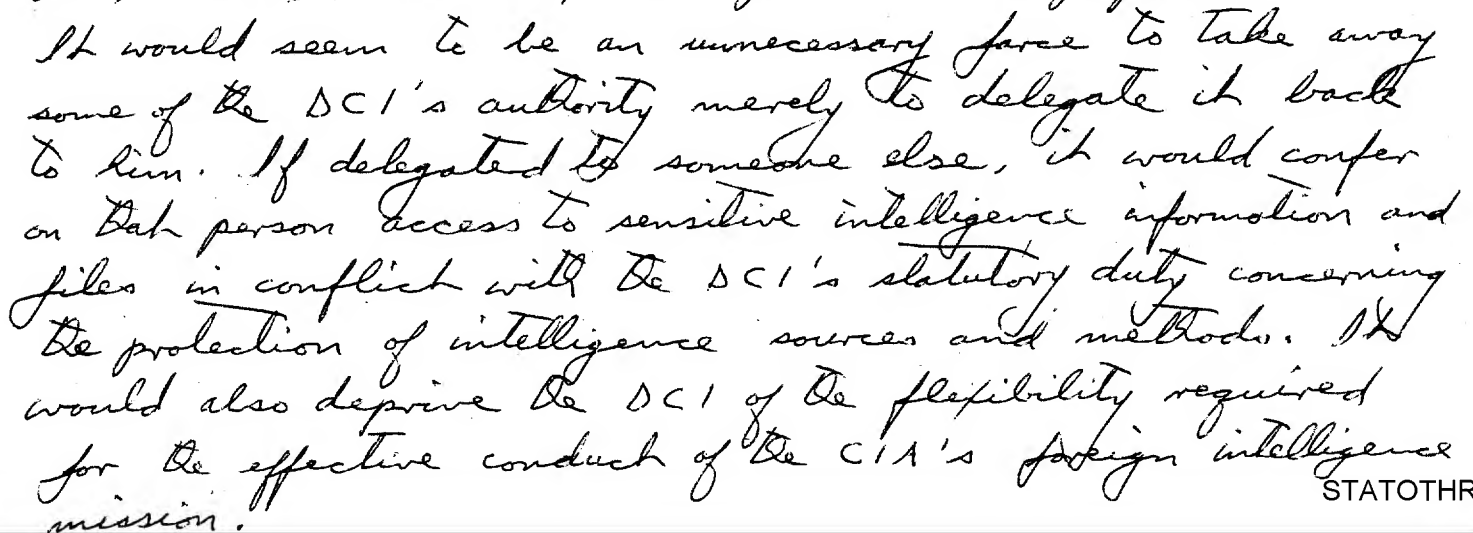 It would seem to be an unnecessary farce to take away
some of the DCI's authority merely to delegate it back
to him. If delegated to someone else, it would confer
on that person access to sensitive intelligence information and
files in conflict with the DCI's statutory duty concerning
the protection of intelligence sources and methods. It
would also deprive the DCI of the flexibility required
for the effective conduct of the CIA's foreign intelligence
STATOTHR
mission.